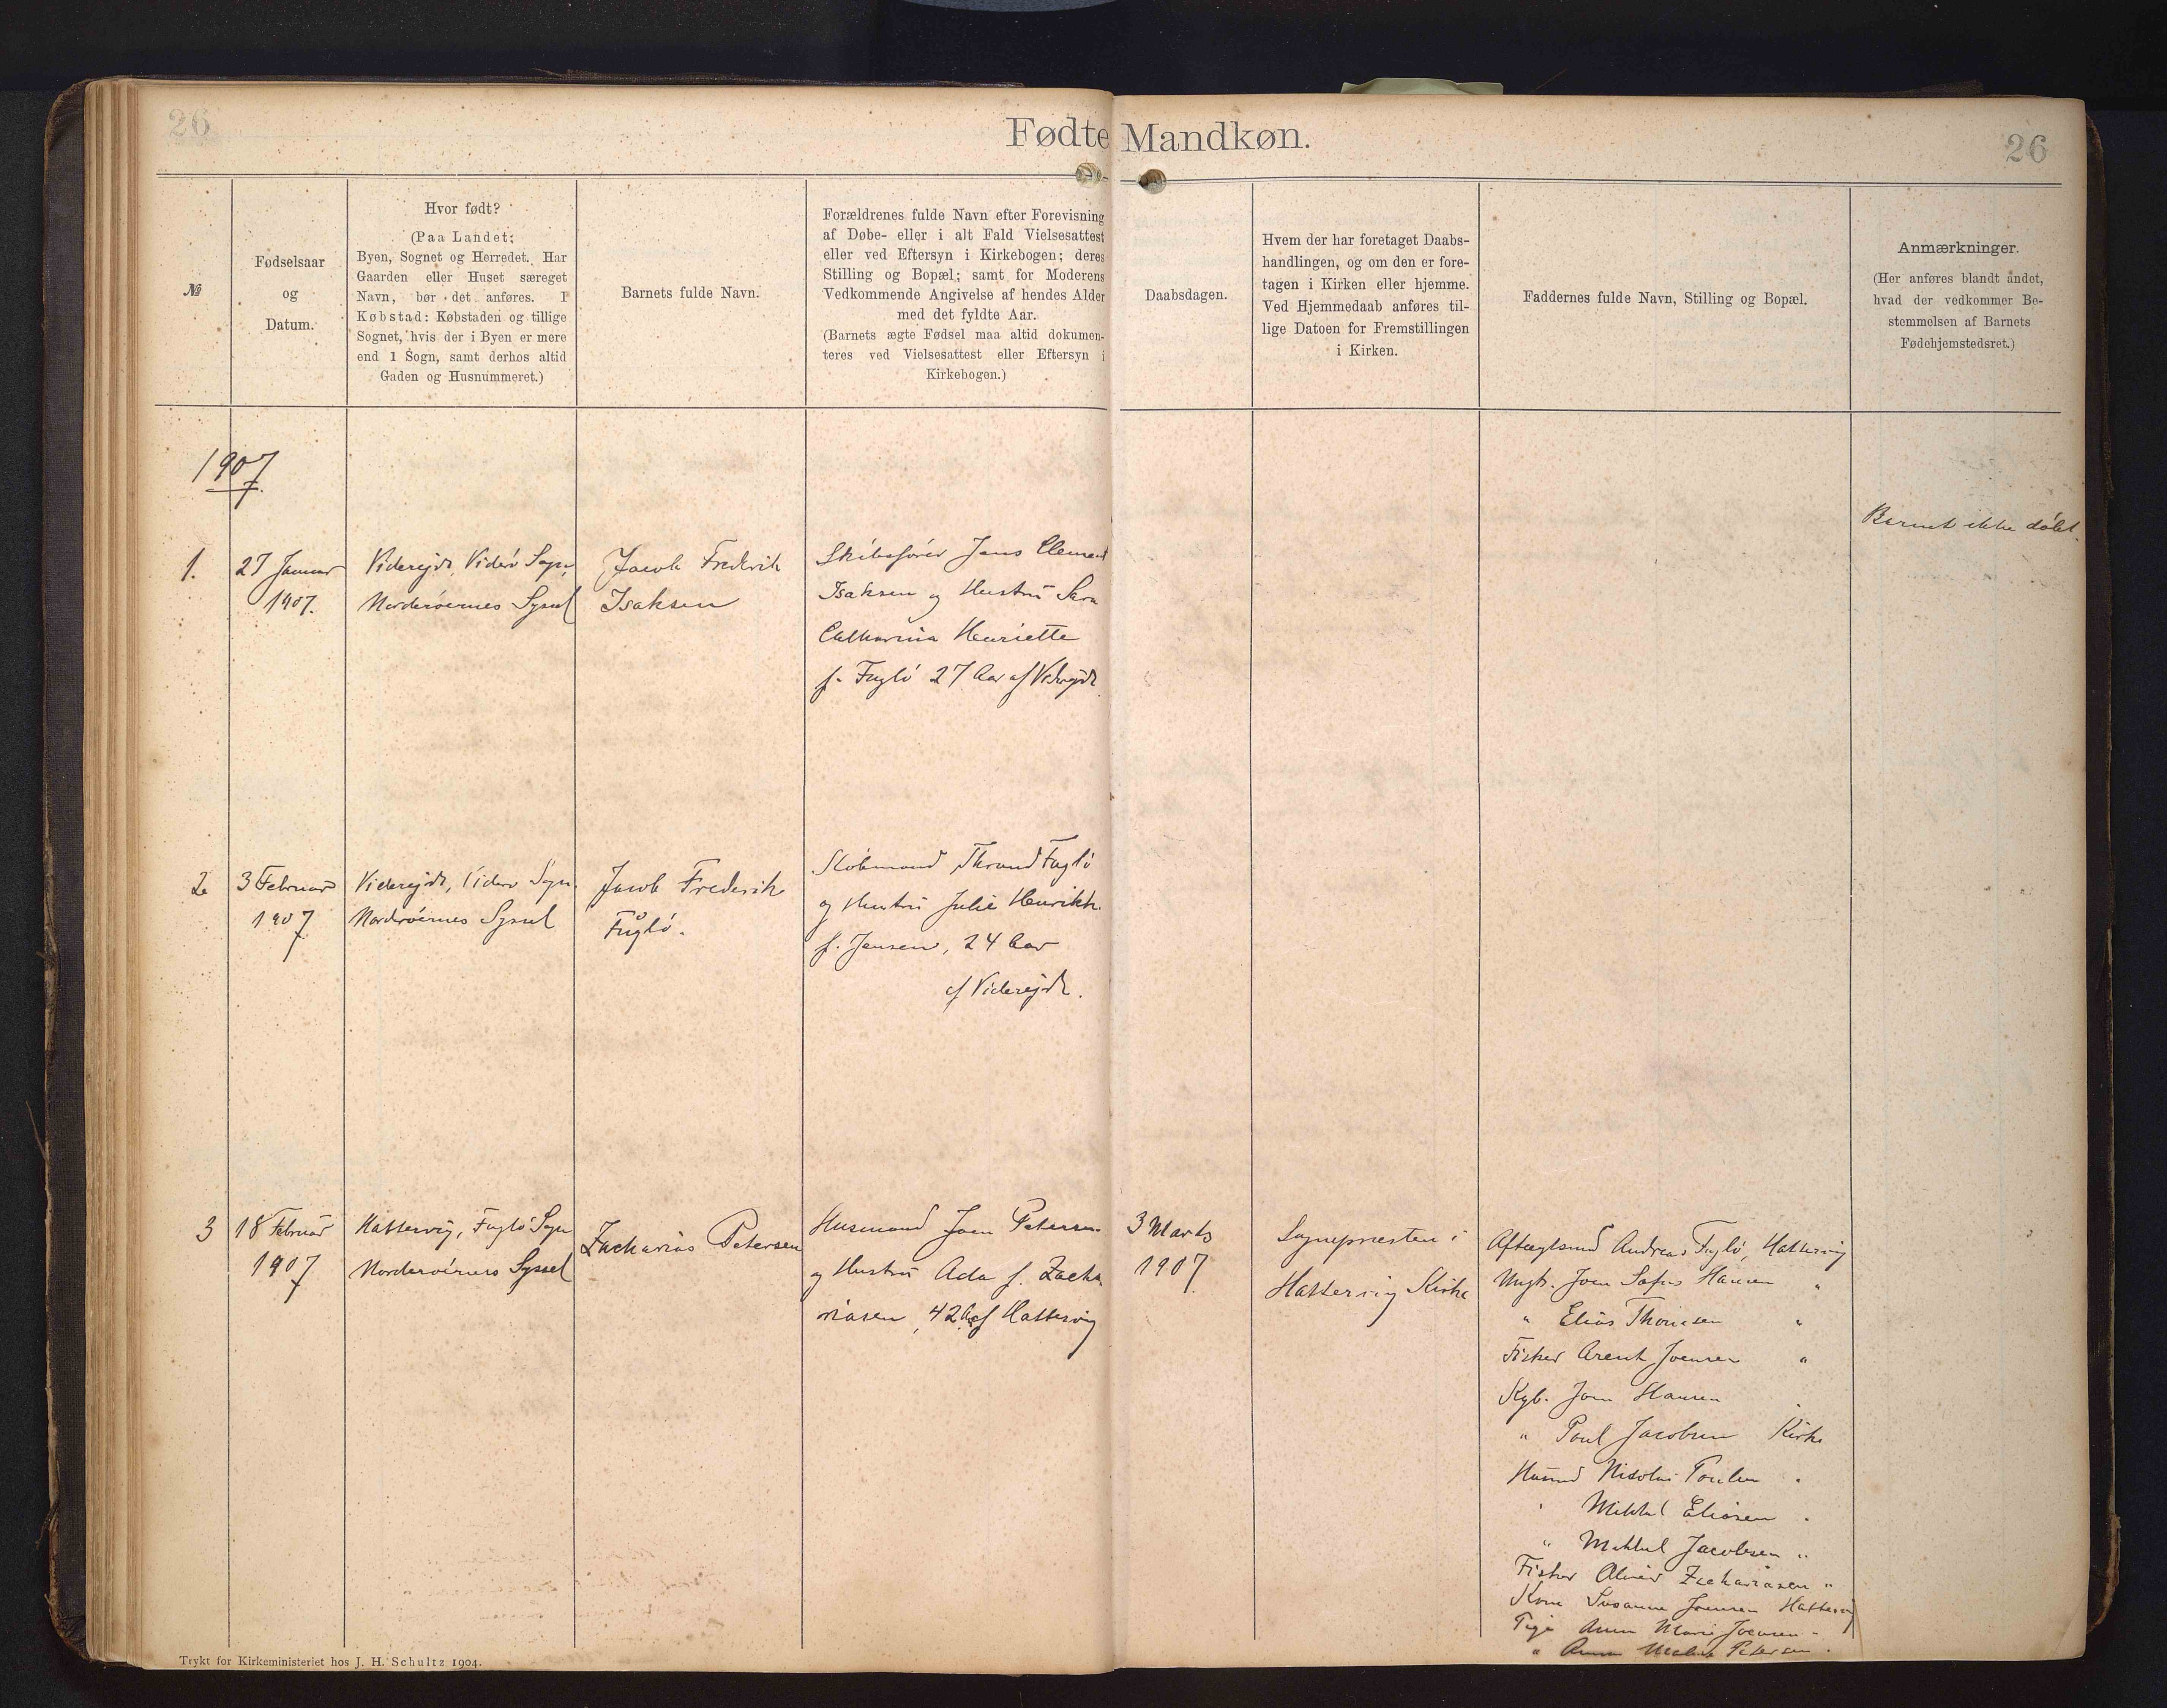 26
Fødte Mandkøn.
26
№
Fødselsaar
og
Datum.
Hvor født?
(Paa Landet:
Byen, Sognet og Herredet. Har
Gaarden eller Huset særeget
Navn, bør det anføres. I
Købstad: Købstaden og tillige
Sognet, hvis der i Byen er mere
end 1 Sogn, samt derhos altid
Gaden og Husnummeret.)
Barnets fulde Navn.
Forældrenes fulde Navn efter Forevisning
af Døbe- eller i alt Fald Vielsesattest
eller ved Eftersyn i Kirkebogen; deres
Stilling og Bopæl; samt for Moderens
Vedkommende Angivelse af hendes Alder
med det fyldte Aar.
(Barnets ægte Fødsel maa altid dokumen-
teres ved Vielsesattest eller Eftersyn i
Kirkebogen.)
Daabsdagen.
Hvem der har foretaget Daabs-
handlingen, og om den er fore-
tagen i Kirken eller hjemme.
Ved Hjemmedaab anføres til-
lige Datoen for Fremstillingen
i Kirken.
Faddernes fulde Navn, Stilling og Bopæl.
Anmærkninger.
(Her anføres blandt andet,
hvad der vedkommer Be-
stemmelsen af Barnets
Fødehjemstedsret.)
1907
1.
27 Januar
1907.
Viderejde, Viderø Sogn,
Norderøernes Syssel
Jacob Frederik
Isaksen
Skibsfører Jens Clement
Isaksen og Hustru Sara
Catharina Henriette
f. Fuglø 27 Aar af Viderejde
Barnet ikke døbt.
2
3 Februar
1907
Viderejde, Viderø Sogn
Norderøernes Syssel
Jacob Frederik
Fuglø.
Thrond Fuglø
og Hustru Julie Henrikke
f. Jensen, 24 Aar
af Viderejde.
3
18 Februar
1907
Hattervig, Fuglø Sogn
Norderøernes Syssel
Zacharias Petersen
Husmand Joen Petersen
og Hustru Ada f. Zacha
riasen, 42 Aar af Hattervig
3 Marts
1907
Sognepræsten i
Hattervig Kirke
Aftægtsmd Andreas Fuglø, Hattervig
Ungk. Joen Hansen "
" Elias Thomsen "
Fisker Arent Joensen "
Kgb. Joen Hansen
" Poul Jacobsen Kirke
Husmd Nicolai Poulsen "
" Mikkel Eliasen "
" Mikkel Jacobsen "
Fisker Zachariasen "
Kone Susanne Joensen Hattervig
Pige Anna Marie Joensen "
" Anna Petersen "
Trykt for Kirkeministeriet hos J. H. Schultz 1904.